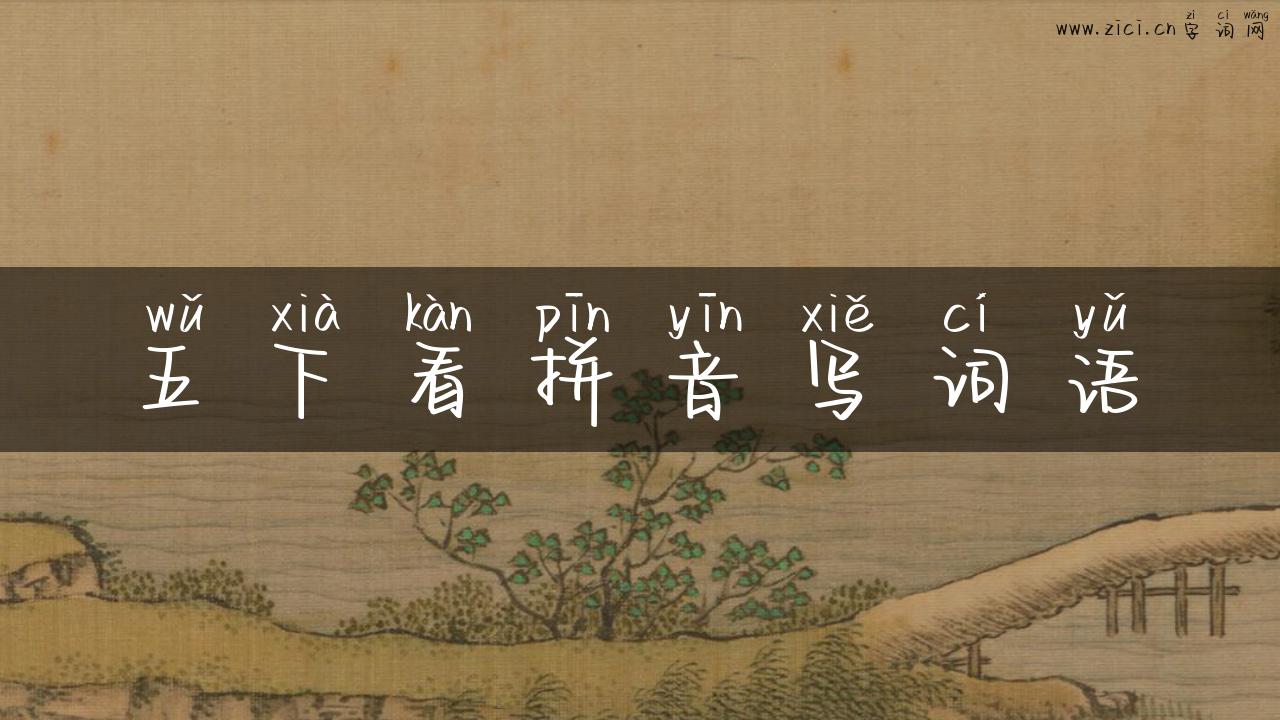 zì cí wǎng
www.zici.cn 字词网
wǔ xià kàn pīn yīn xiě cí yǔ
五下看拼音写词语